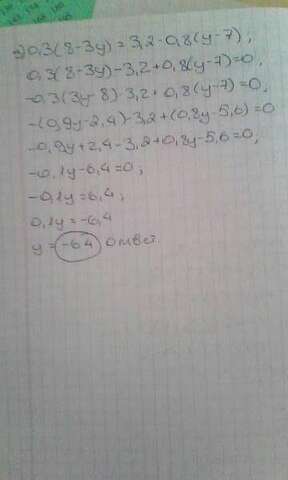 0,3(8-3y)=3,2-0,8(y-7),
0,3(8-3y)-3,2+0,8(y-7)=0,
-0,3(3y-8)-3,2+0,8(y-7)=0,
-(0,9y-2,4)-3,2+(0,8y-5,6)=0
-0,9y+2,4-3,2+0,8y-5,6=0,
-0,1y-6,4=0;
-0,1y=6,4;
0,1y=-6,4
y=-64 ответ.